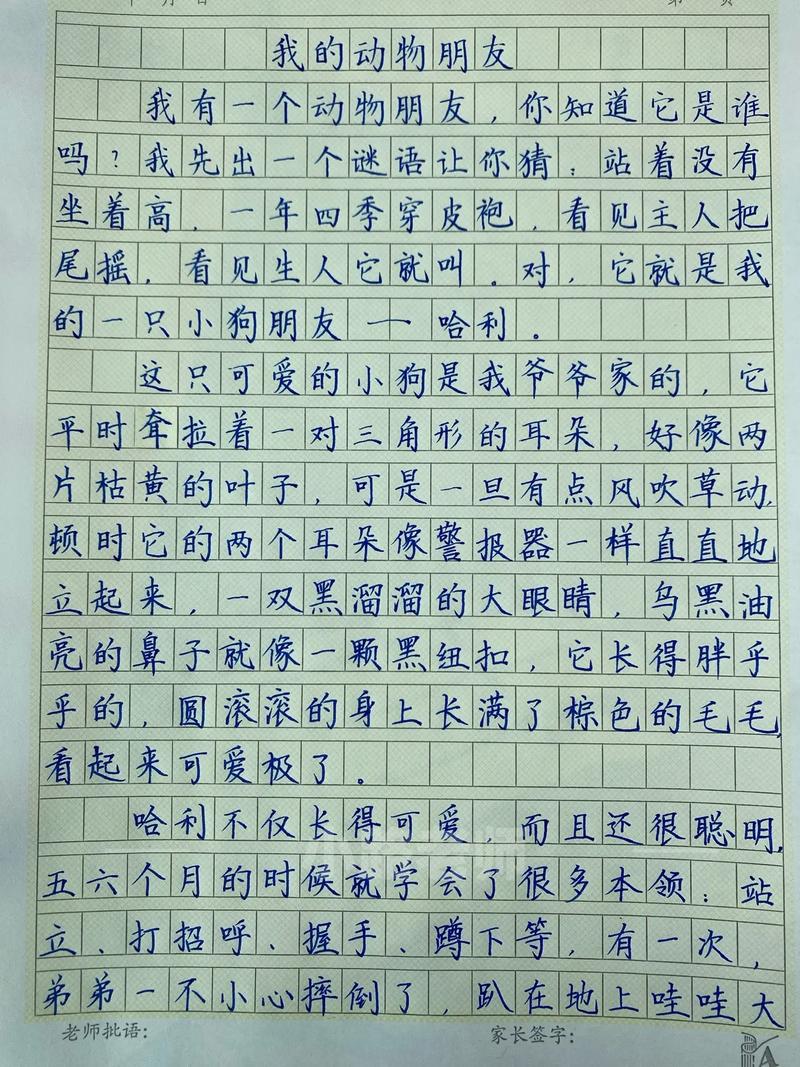 年 月 日 第 页
我的动物朋友
我有一个动物朋友，你知道它是谁
吗？我先出一个谜语让你猜：站着没有
坐着高，一年四季穿皮袍，看见主人把
尾摇，看见生人它就叫。对，它就是我
的一只小狗朋友——哈利。
这只可爱的小狗是我爷爷家的，它
平时耷拉着一对三角形的耳朵，好像两
片枯黄的叶子，可是一旦有点风吹草动，
顿时它的两个耳朵像警报器一样直直地
立起来，一双黑溜溜的大眼睛，乌黑油
亮的鼻子就像一颗黑纽扣，它长得胖乎
乎的，圆滚滚的身上长满了棕色的毛毛，
看起来可爱极了。
哈利不仅长得可爱，而且还很聪明，
五六个月的时候就学会了很多本领：站
立、打招呼、握手、蹲下等，有一次，
弟弟一不小心摔倒了，趴在地上哇哇大
老师批语： 家长签字：